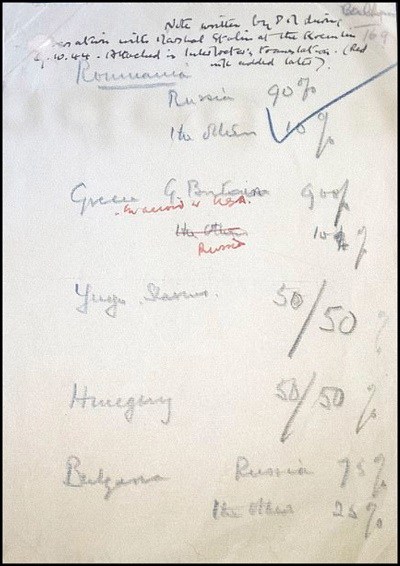 169
Note written by P.M during
ersation with Marshal Stalin at the Kremlin
9.10.44. Attached is translation. (Red
ink added later).
Roumania
Russia 90%
the others 10%
Greece G. Britain 90%
in accord w USA.
the others 10%
Russia
Yugo Slavia. 50/50 %
Hungary 50/50 %
Bulgaria Russia 75%
the others 25%